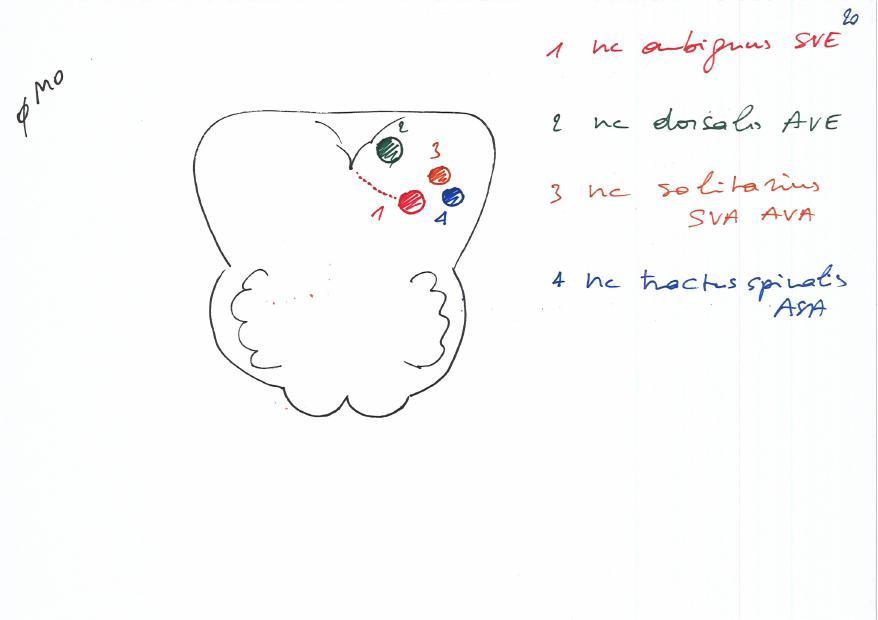 20
ϕ MO
1 nc ambiguus SVE
2 nc dorsalis AVE
3 nc solitarius
SVA AVA
4 nc tractus spinalis
ASA
2
3
1
4